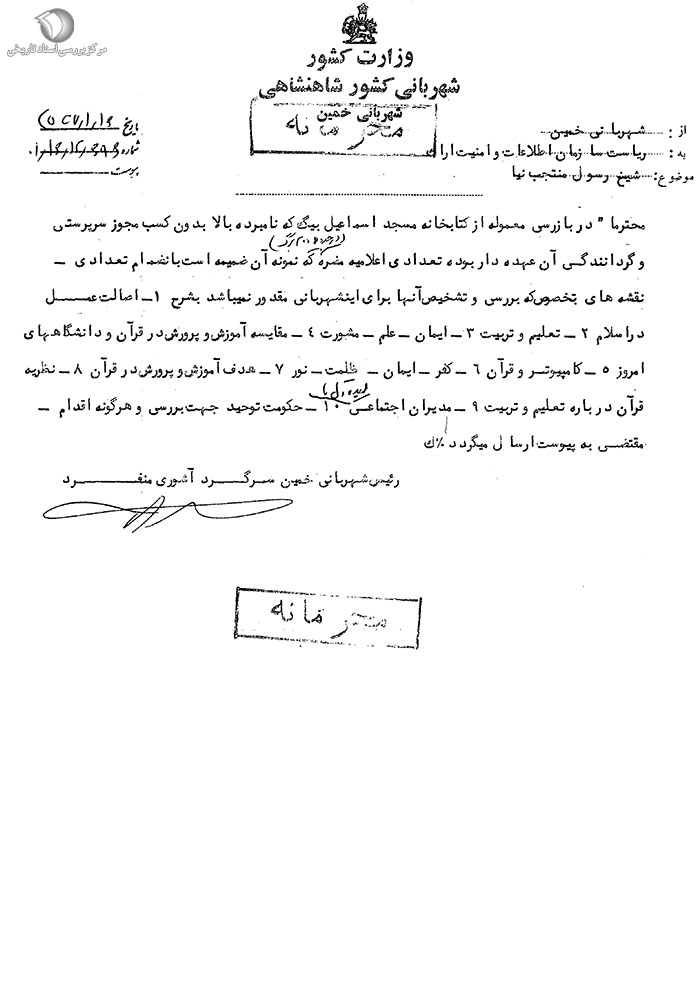 مرکز بررسی اسناد تاریخی
وزارت کشور
شهربانی کشور شاهنشاهی
شهربانی خمین
محرمانه
تاریخ
شماره
پیوست
از : شهربانی خمین
به : ریاست سازمان اطلاعات و امنیت اراک
موضوع : شیخ رسول منتجب نیا
محترما" در بازرسی معموله از کتابخانه مسجد اسماعیل بیگ که نامبرده بالا بدون کسب مجوز سرپرستی
و گردانندگی آن عهده دار بوده تعدادی اعلامیه مضره که نمونه آن ضمیمه است بانضمام تعدادی ـ
نقشه های بخصوص که بررسی و تشخیص آنها برای اینشهربانی مقدور نمیباشد بشرح ۱ـ اصالت عمل
در اسلام ۲ ـ تعلیم و تربیت ۳ ـ ایمان ـ علم ـ مشورت ٤ ـ مقایسه آموزش و پرورش در قرآن و دانشگاههای
امروز ٥ ـ کامپیوتر و قرآن ٦ ـ کفر ـ ایمان ـ ظلمت ـ نور ۷ ـ هدف آموزش و پرورش در قرآن ۸ ـ نظریه
قرآن درباره تعلیم و تربیت ۹ ـ مدیران اجتماعی ۱۰ ـ حکومت توحید جهت بررسی و هرگونه اقدام ـ
مقتضی به پیوست ارسال میگردد
رئیس شهربانی خمین سرگرد آشوری منفرد
محرمانه